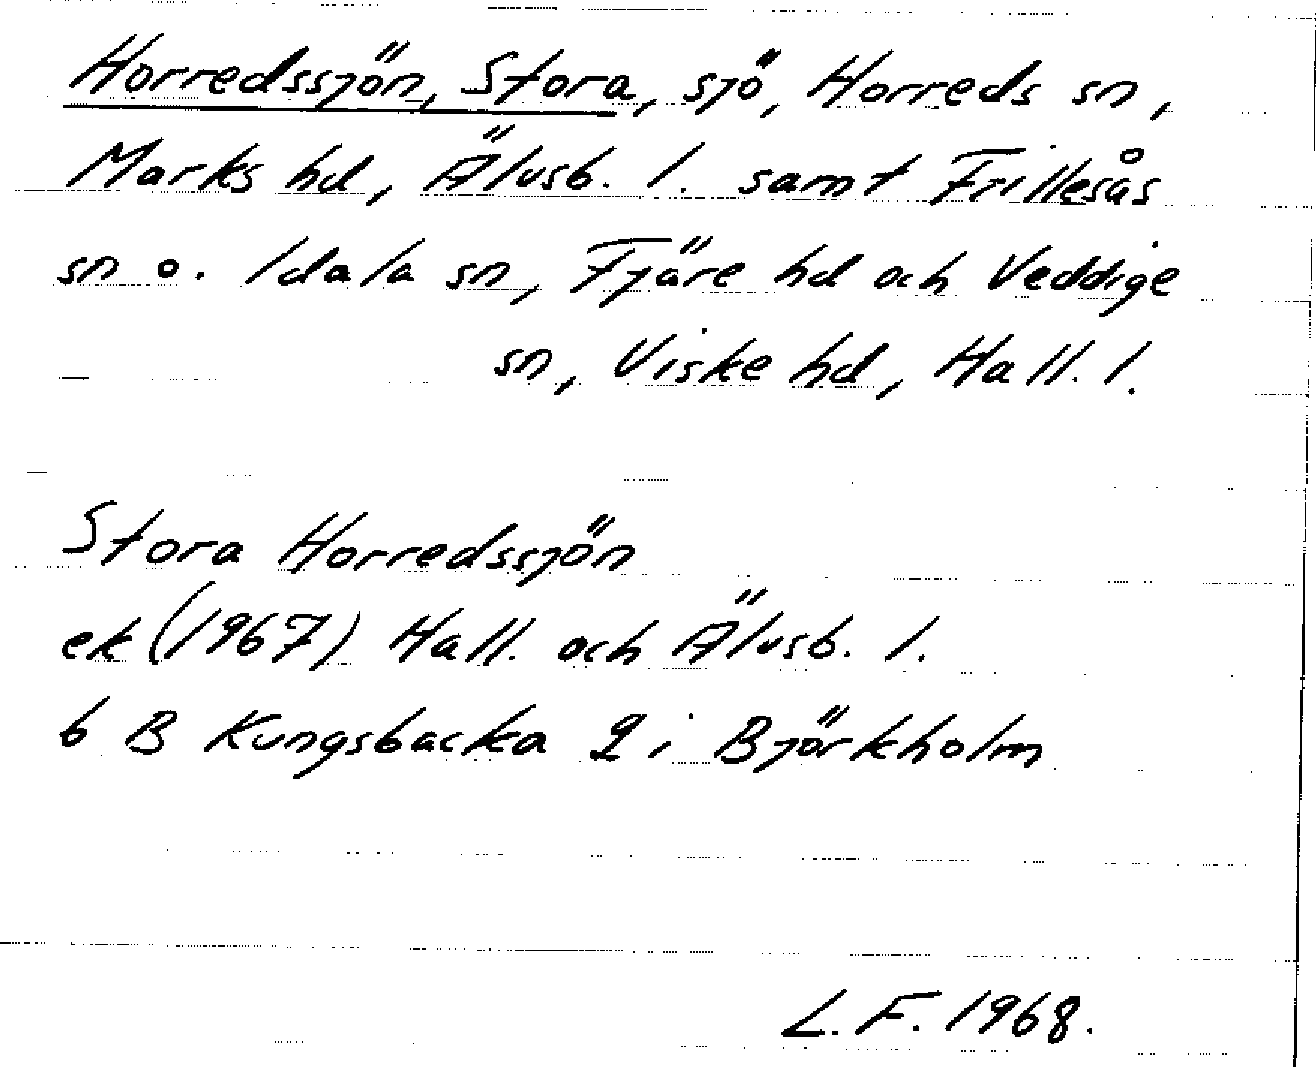 Horredssjön, Stora, sjö, Horreds sn,
Marks hd, Älvsb. l. samt Frillesås
sn o. Idala sn, Fjäre hd och Veddige
sn, Viske hd, Hall. l.
Stora Horredssjön
ek (1967) Hall. och Älvsb. l.
6 B Kungsbacka 2 i Björkholm
L. F. 1968.